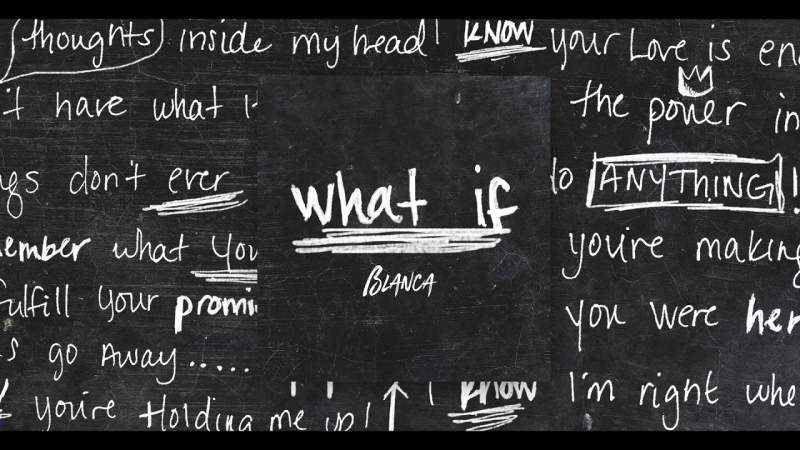 thoughts inside my head! KNOW your Love is en
't have what it the power in
ngs don't ever to ANYTHING!!
what if
member what you you're making
BLANCA
fulfill your promi you were her
s go Away..... 
you're Holding me up! I know I'm right whe